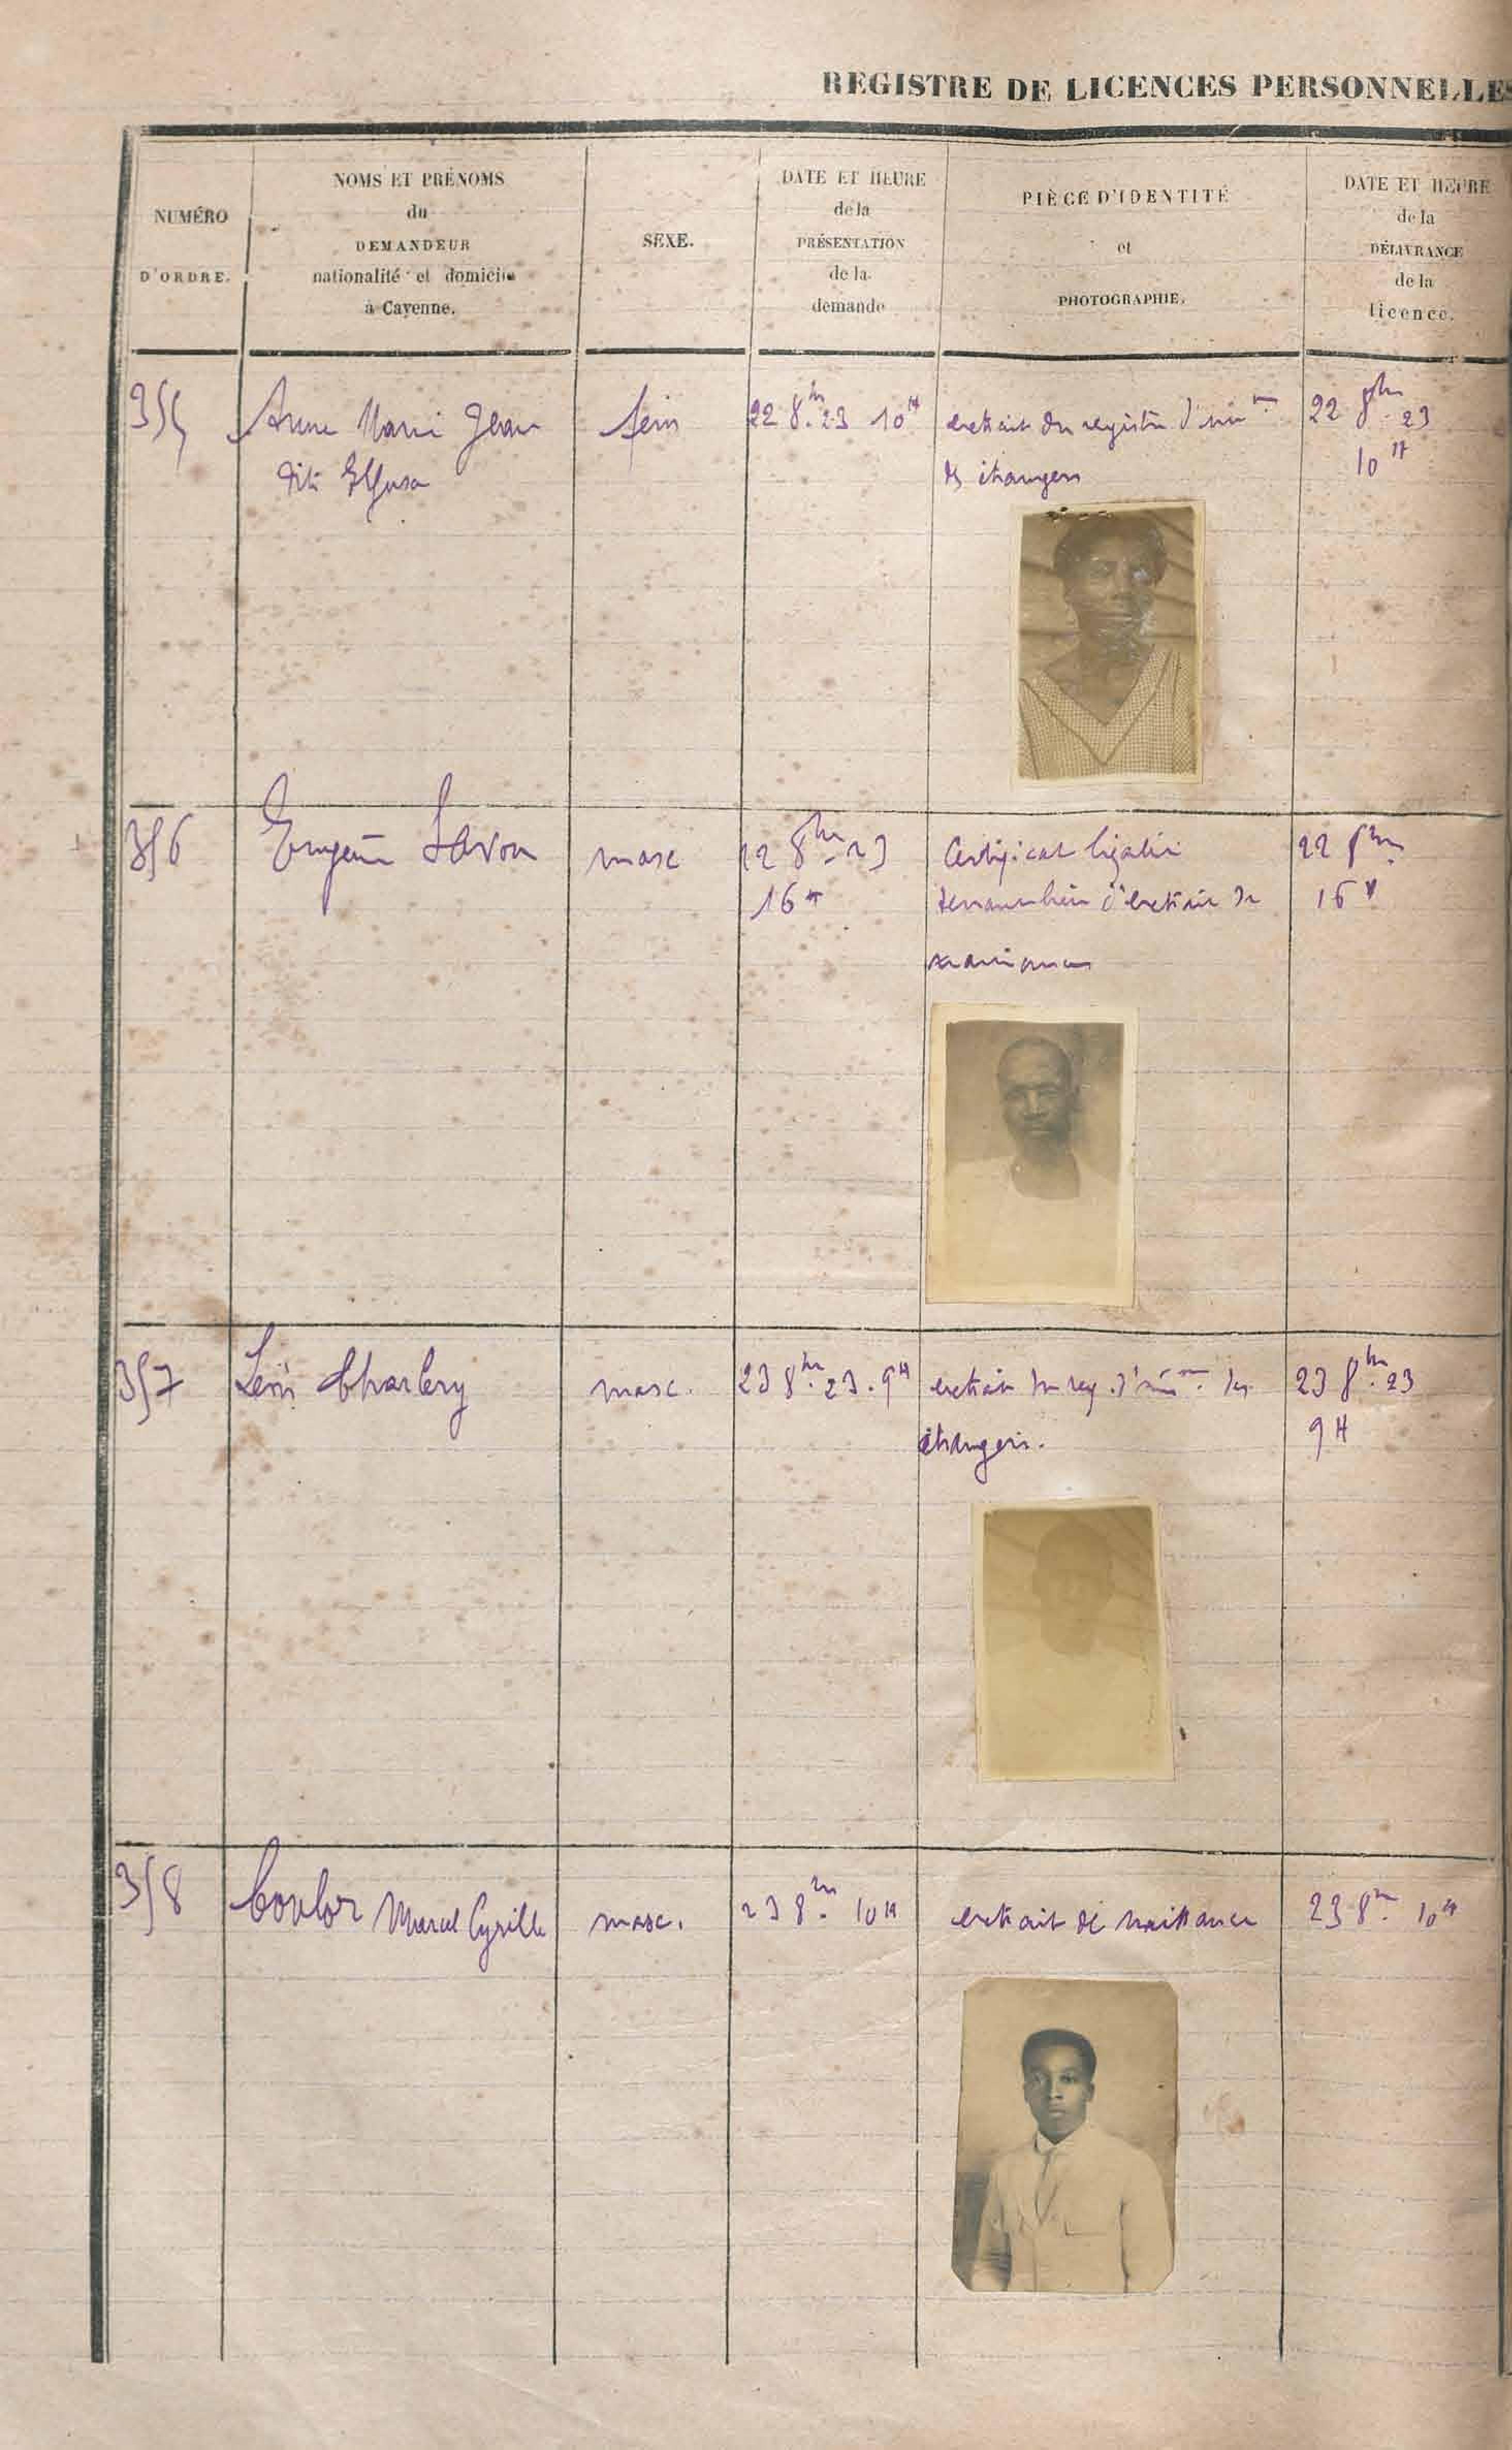 REGISTRE DE LICENCES PERSONNELLES
NUMÉRO
D'ORDRE.
NOMS ET PRÉNOMS
du
DEMANDEUR
nationalité et domicile
à Cayenne.
SEXE.
DATE ET HEURE
de la
PRÉSENTATION
de la
demande
PIÈCE D'IDENTITÉ
et
PHOTOGRAPHIE.
DATE ET HEURE
de la
DÉLIVRANCE
de la
licence.
355
Anne Marie Jean
dite
fém
22 8bre 23 10H
extrait du registre d'imm
des étrangers
22 8bre 23
10H
356
Eugène
masc
22 8bre 23
16H
Certificat
tenant lieu d'extrait de
22 8bre
16H
357
Léon Charlery
masc.
23 8bre 23. 9H
extrait du reg. d'imm des
étrangers.
23 8bre 23
9H
358
Marcel Cyrille
masc.
23 8bre 10H
extrait de naissance
23 8bre 10H